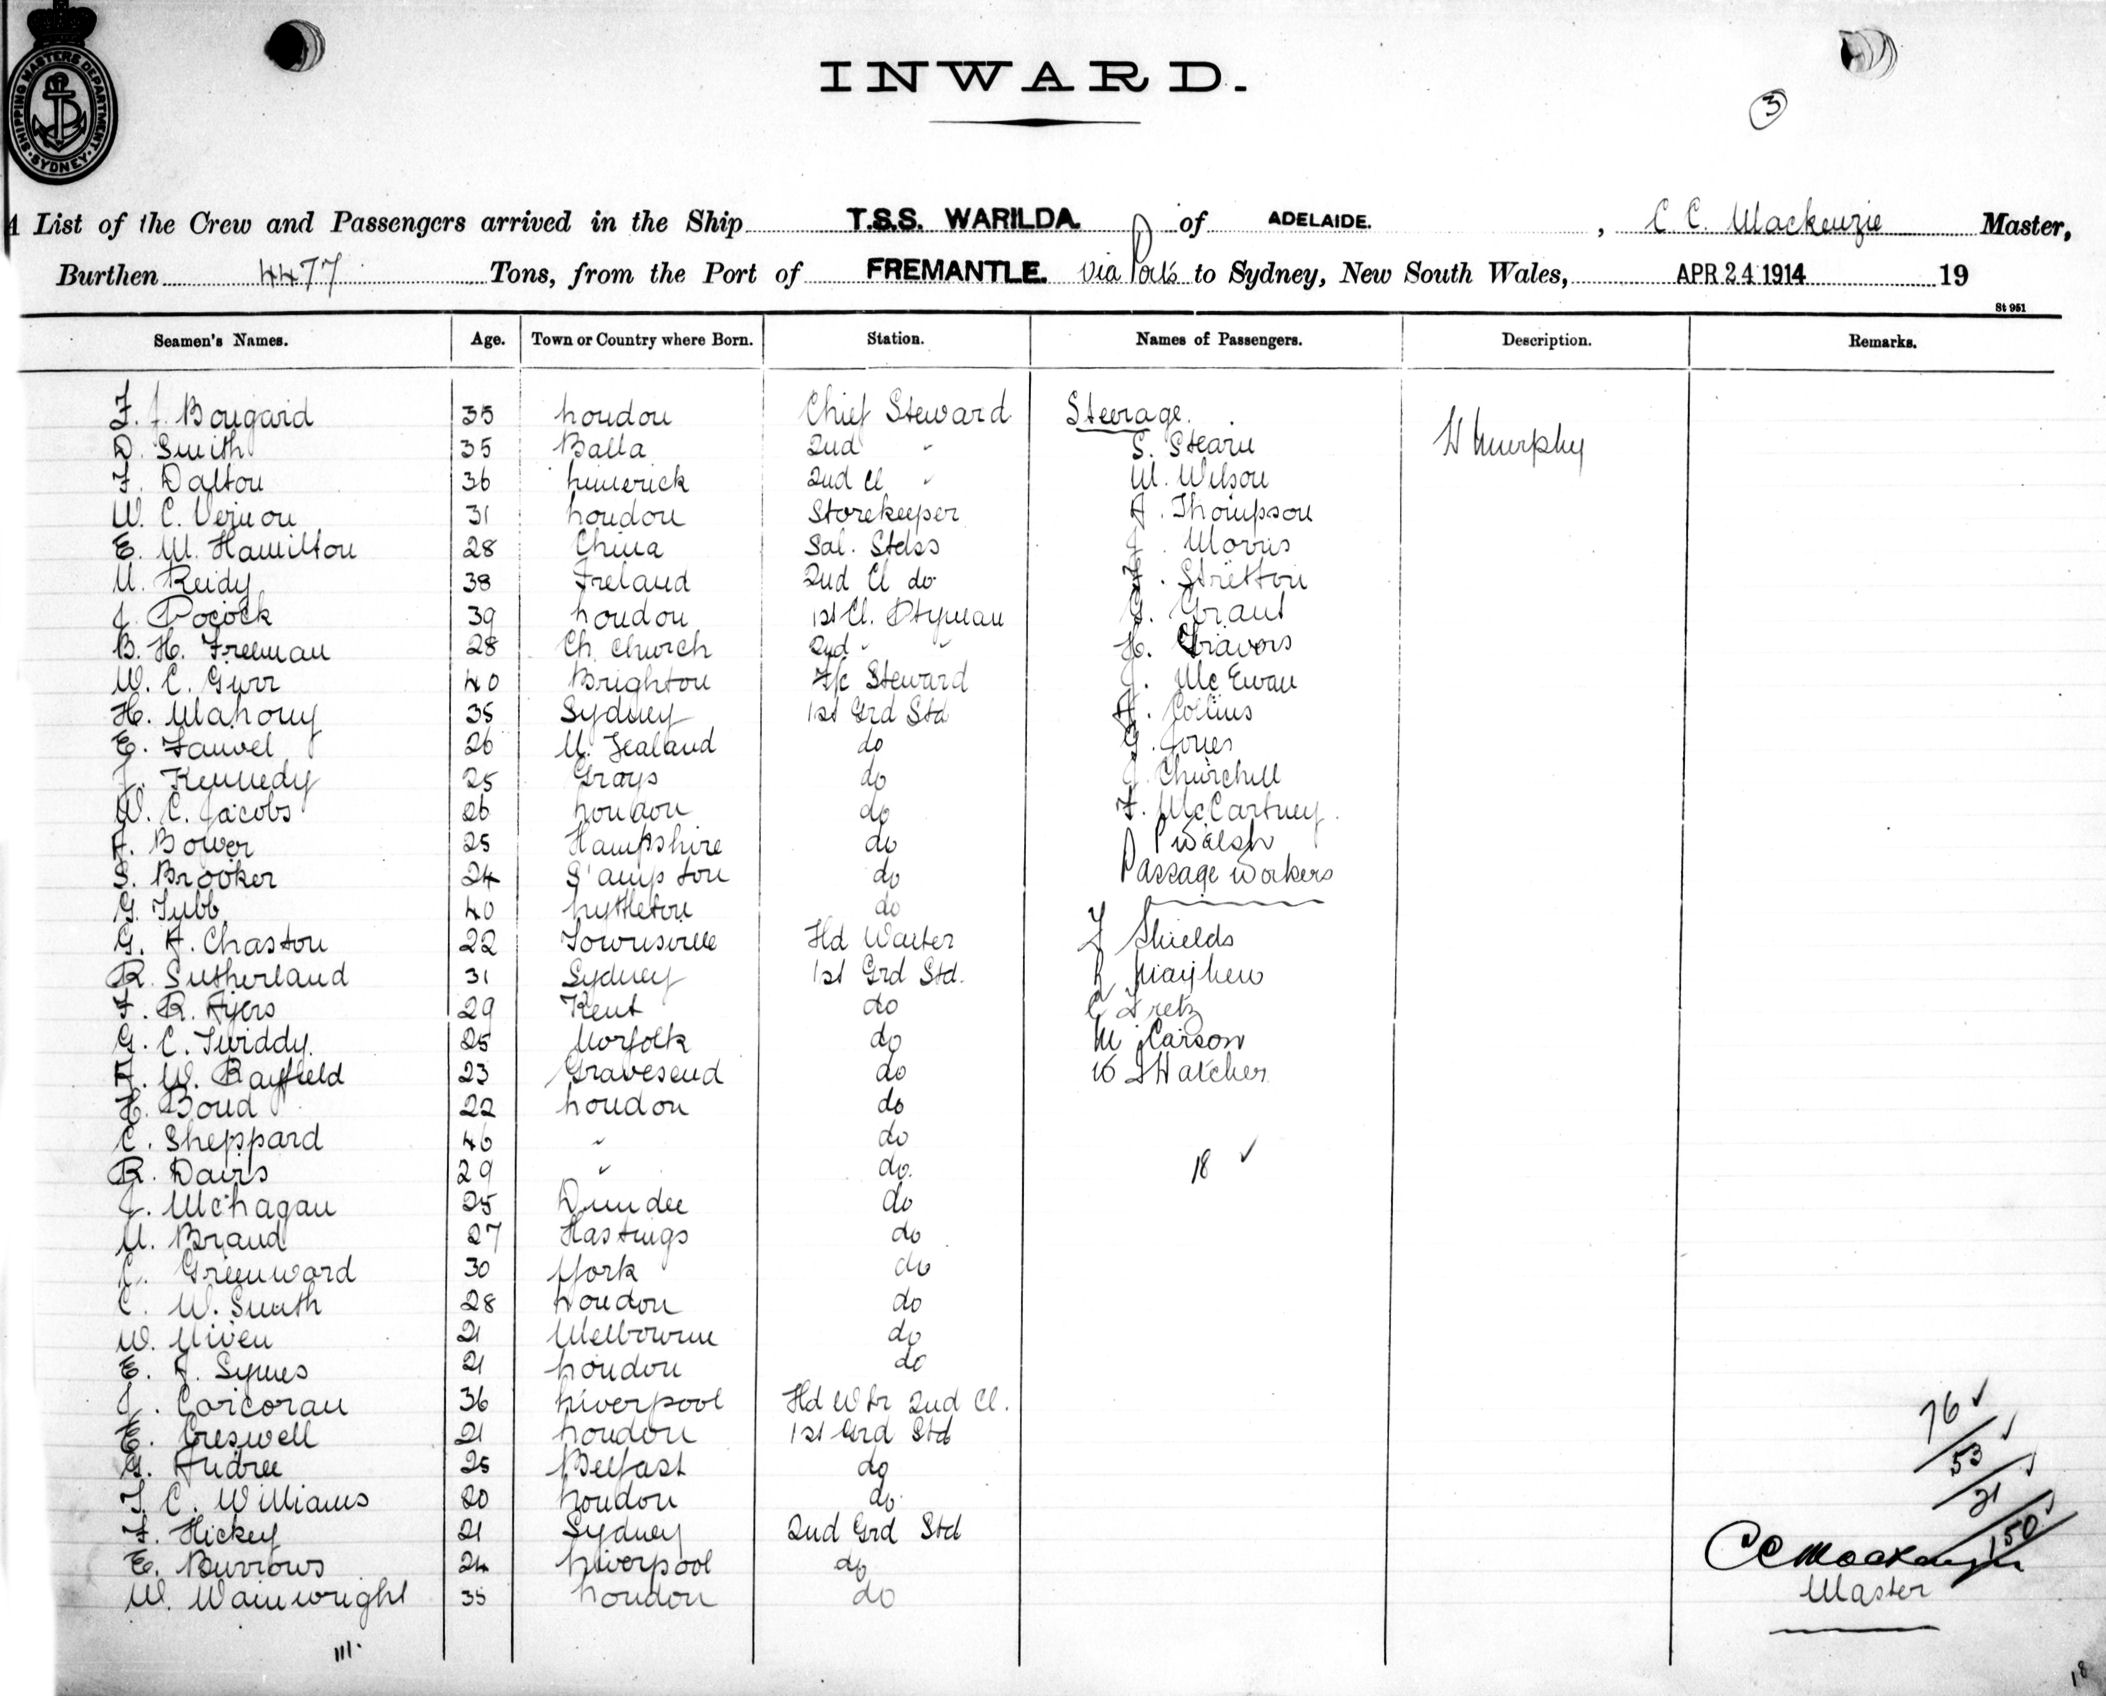 SHIPPING MASTERS DEPARTMENT. SYDNEY.
INWARD.
3
A List of the Crew and Passengers arrived in the Ship T.S.S. WARILDA. of ADELAIDE. , C. C. Mackenzie Master,
Burthen 4477 Tons, from the Port of FREMANTLE. via Ports to Sydney, New South Wales, APR 24 1914 19
St 951
Seamen's Names. Age. Town or Country where Born. Station. Names of Passengers. Description. Remarks.
F. J. Bougard 35 London Chief Steward Steerage.
D. Smith 35 Balla 2nd " S. Stearn Murphy
F. Dalton 36 Limerick 2nd Cl " W. Wilson
W. C. Vernon 31 London Storekeeper A. Thompson
E. M. Hamilton 28 China Sal. Stdss J. Morris
M. Reidy 38 Ireland 2nd Cl do F. Stretton
J. Pocock 39 London 1st Cl. Ptryman G. Grant
B. H. Freeman 28 Ch. Church 2nd " " H.
W. C. Gurr 40 Brighton F/c Steward J. McEwan
H. Mahony 35 Sydney 1st Grd Std A. Collins
E. Fauvel 26 N. Zealand do G. Jones
J. Kennedy 25 Grays do J. Churchill
W. C. Jacobs 26 London do F. McCartney.
A. Bower 25 Hampshire do P Walsh
S. Brooker 24 S'ampton do Passage Workers
G. Tubb 40 Lyttleton do
G. A. Chaston 22 Townsville Hd Waiter Shields
R. Sutherland 31 Sydney 1st Grd Std. Mayhew
F. R. Ayers 29 Kent do C Fretz
G. C. Twiddy. 25 Norfolk do M Carson
A. W. Rayfield 23 Gravesend do Hatcher
H. Bond 22 London do
C. Sheppard 46 " do
R. Davis 29 " do. 18 ✓
J. McLagan 25 Dundee do
N. Brand 27 Hastings do
J. Greenward 30 York do
C. W. Smith 28 London do
W. Niven 21 Melbourne do
E. A. Symes 21 London do
J. Corcoran 36 Liverpool Hd Wtr 2nd Cl. 76 ✓
E. Creswell 21 London 1st Grd Std 53 ✓
G. Andree 25 Belfast do 21 ✓
T. C. Williams 20 London do 150 ✓
F. Hickey 21 Sydney 2nd Grd Std
E. Burrows 24 Liverpool do C C Mackenzie
W. Wainwright 35 London do Master
111.
18